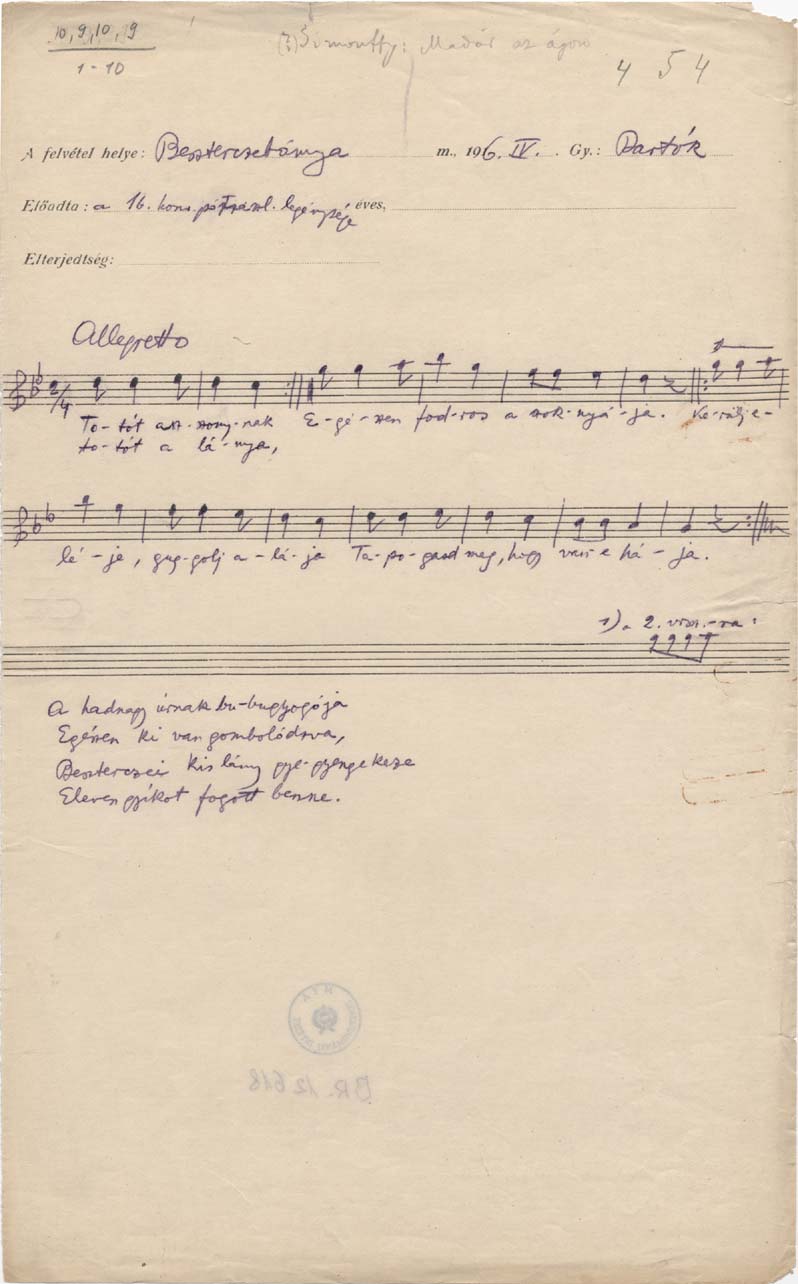 10, 9, 10, 9
1-10
(?) Simonffy: Madár az ágon
454
A felvétel helye: Beszterczebánya m., 1916. IV. Gy.: Bartók
Előadta: a 16. honv. pótzászl. legénysége éves,
Elterjedtség:
Allegretto
2/4
To-tót asz-szony-nak E-gé-szen fod-ros a szok-nyá-ja. Ke-rülj e-
to-tót a lá-nya,
lé-je, gug-golj a-lá-ja Ta-po-gasd meg, hogy van-e há-ja.
1) a 2. vrsz.-ra:
A hadnagy úrnak bu-bugyogója
Egészen ki van gombolódzva,
Beszterczei kis lány gye-gyenge keze
Eleven gyíkot fogott benne.
BR. 12618